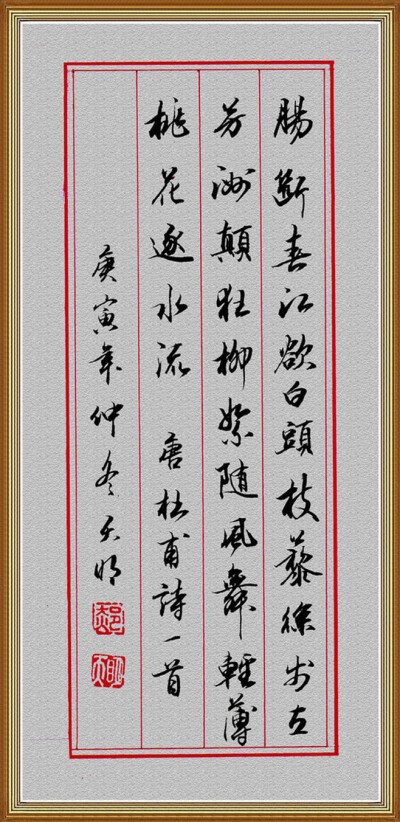 腸斷春江欲白頭杖藜徐步立
芳洲顛狂柳絮随風舞輕薄
桃花逐水流 唐杜甫詩一首
庚寅年仲冬天明
天明